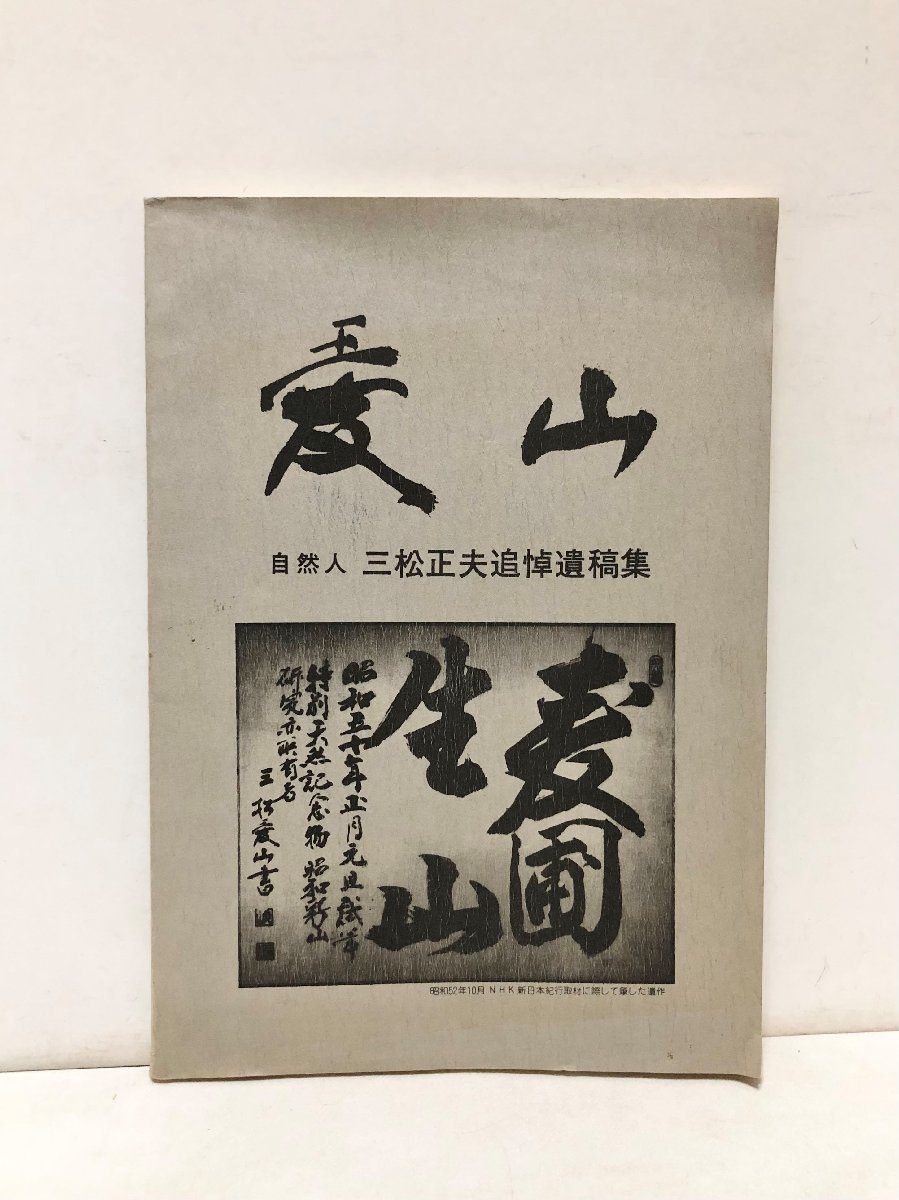 愛山
自然人 三松正夫追悼遺稿集
麦圃
生山
昭和五十年正月元旦
特別天然記念物 昭和新山
研究亦所有者
三松愛山書
昭和52年10月 NHK新日本紀行取材に際して筆した遺作